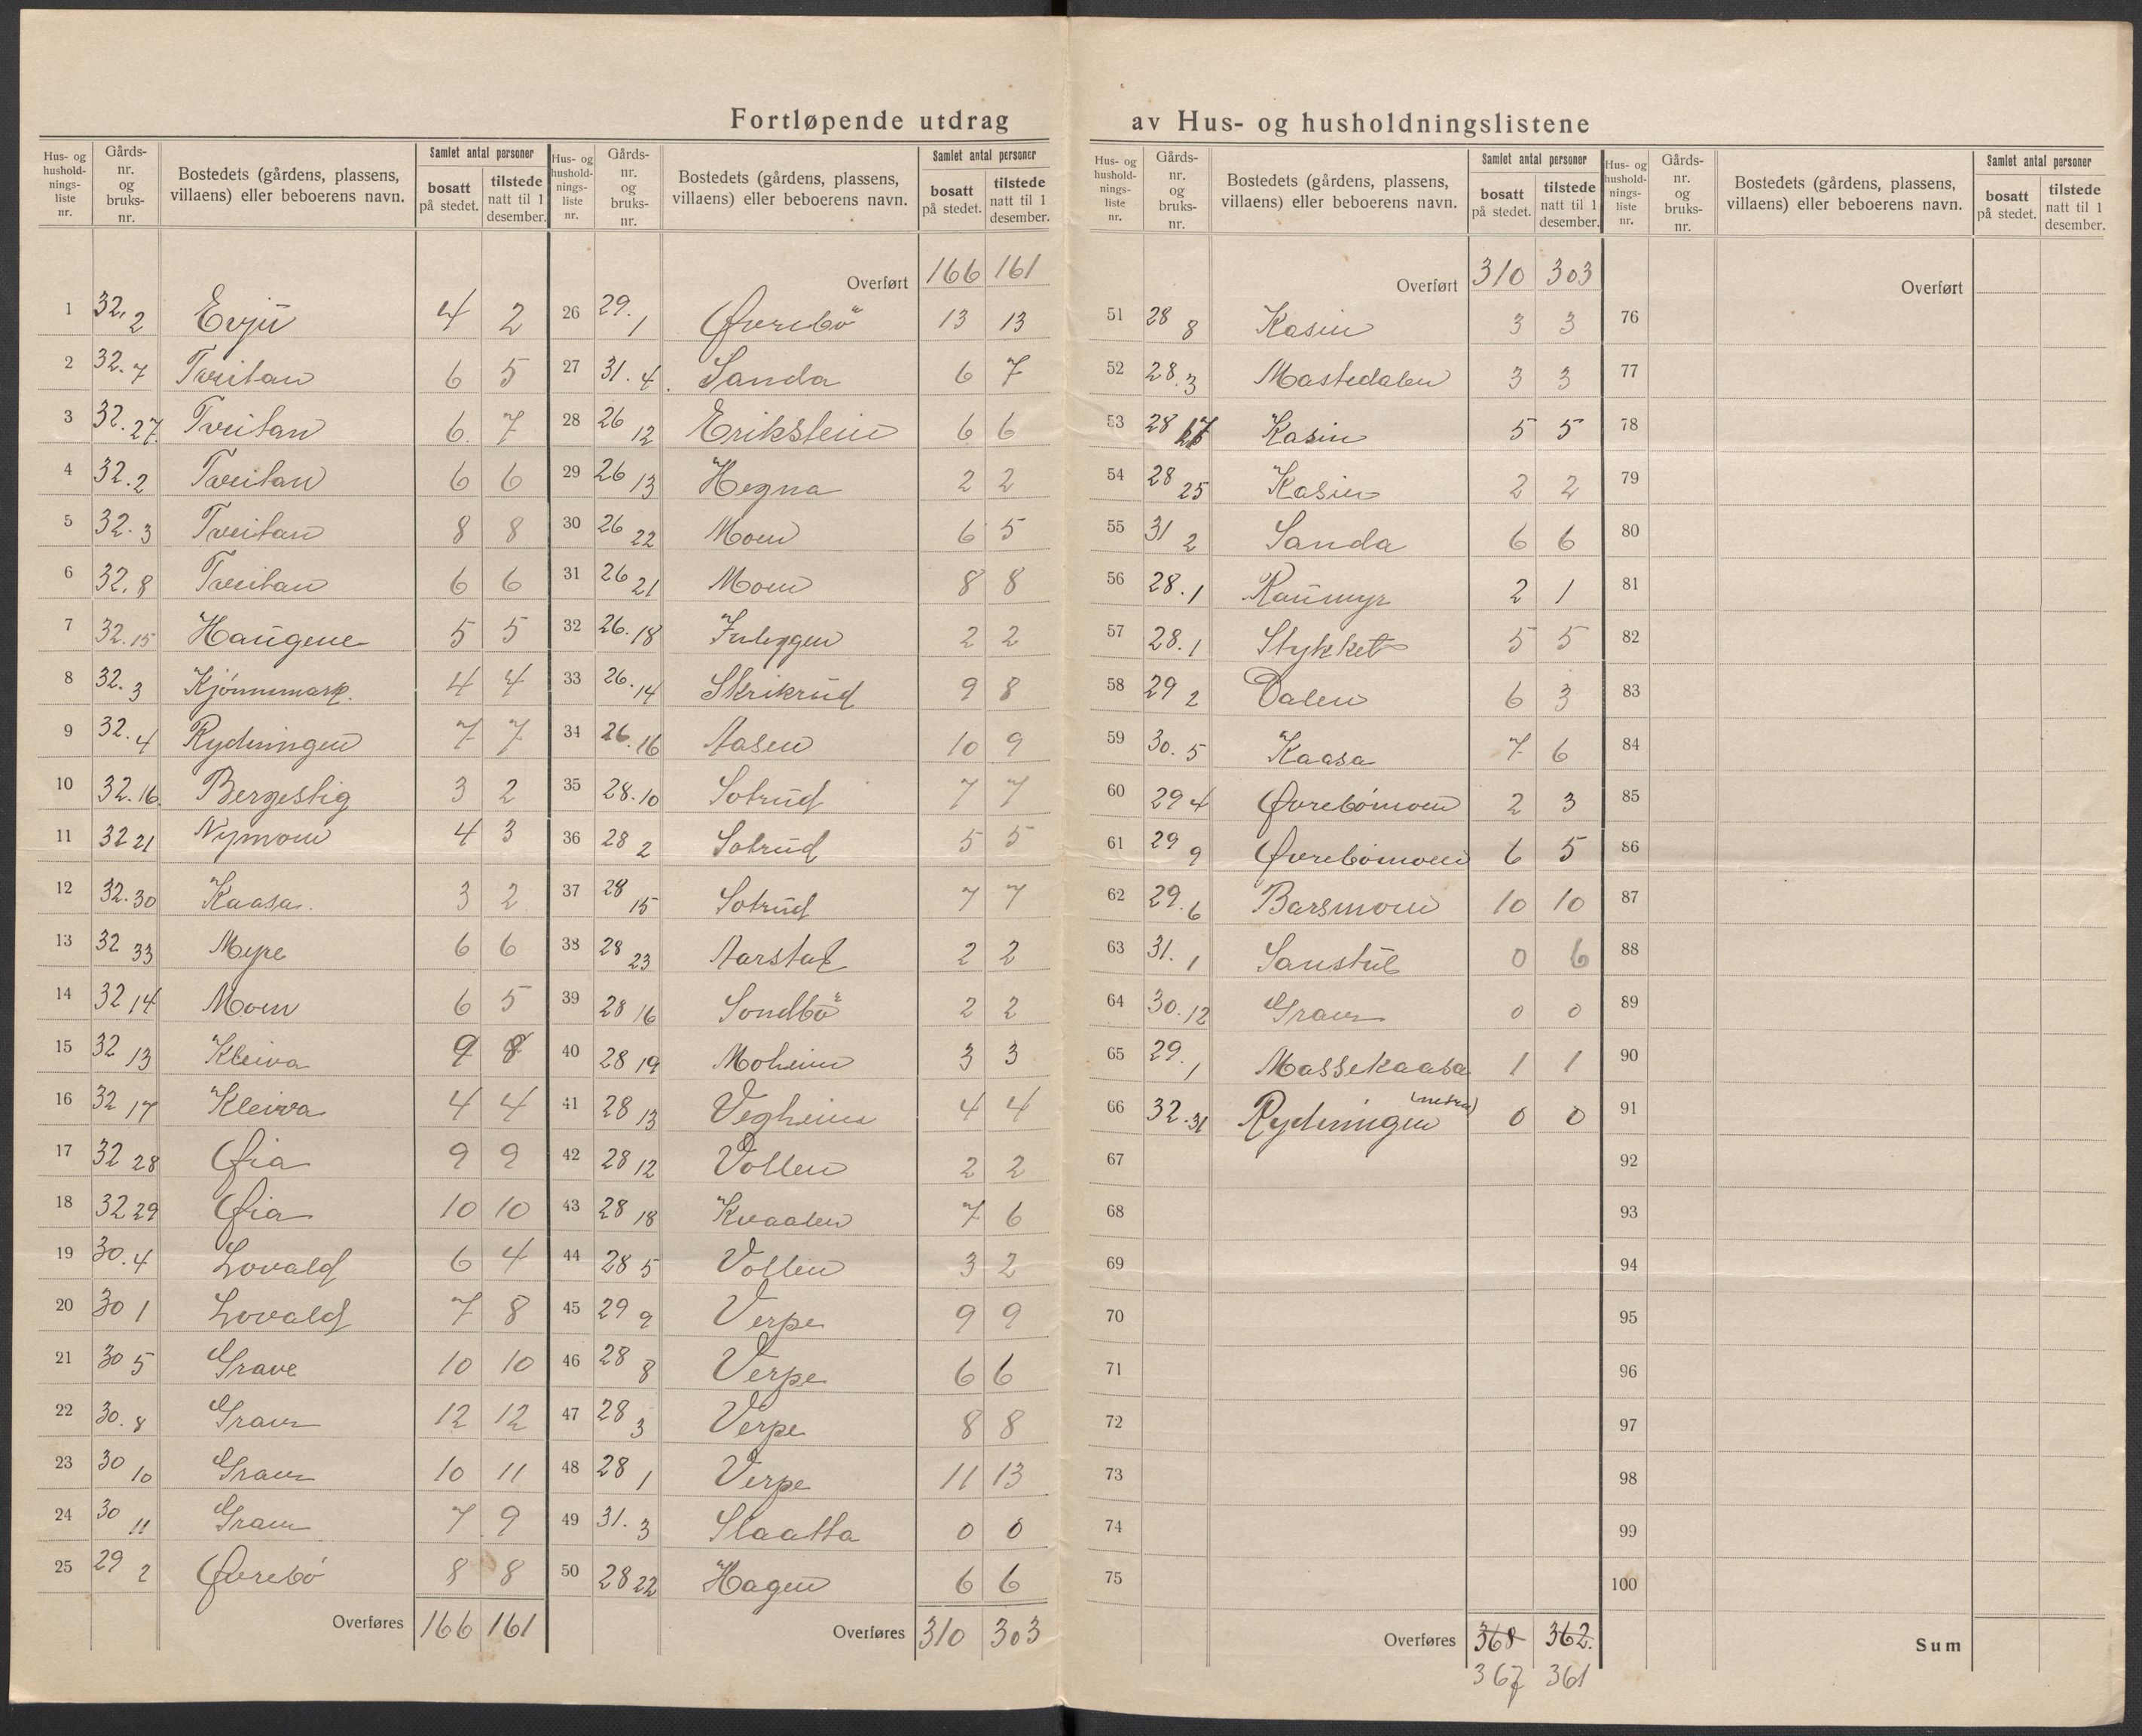 Fortløpende utdrag av Hus- og husholdningslistene
Hus- og husholdnings-liste nr. | Gårds-nr. og bruks-nr. | Bostedets (gårdens, plassens, villaens) eller beboerens navn. | Samlet antal personer | bosatt på stedet. | tilstede natt til 1 desember.
1 32.2 Evju 4 2
2 32.7 Tveitan 6 5
3 32.27 Tveitan 6 7
4 32.2 Tveitan 6 6
5 32.3 Tveitan 8 8
6 32.8 Tveitan 6 6
7 32.15 Haugene 5 5
8 32.3 Kjønnmark. 4 4
9 32.4 Rydningen 7 7
10 32.16. Bergestig 3 2
11 32 21 Nymoen 4 3
12 32.30 Kaasa. 3 2
13 32 33 Mepe 6 6
14 32 14 Moen 6 5
15 32 13 Kleiva 9 8
16 32 17 Kleiva 4 4
17 32 28 Øia 9 9
18 32 29 Øia 10 10
19 30.4 Lovald 6 4
20 30 1 Lovald 7 8
21 30 5 Grave 10 10
22 30.8 Grave 12 12
23 30 10 Grave 10 11
24 30 11 Grave 7 9
25 29 2 Øvrebö 8 8
Overføres 166 161
Hus- og husholdnings-liste nr. | Gårds-nr. og bruks-nr. | Bostedets (gårdens, plassens, villaens) eller beboerens navn. | Samlet antal personer | bosatt på stedet. | tilstede natt til 1 desember.
Overført 166 161
26 29.1 Øvrebö 13 13
27 31.4. Sanda 6 7
28 26 12 Erikstein 6 6
29 26 13 Hegna 2 2
30 26 22 Moen 6 5
31 26 21 Moen 8 8
32 26.18 Juleggen 2 2
33 26.14 Skrikrud 9 8
34 26.16 Aasen 10 9
35 28.10 Sotrud 7 7
36 28 2 Sotrud 5 5
37 28 15 Sotrud 7 7
38 28 23 Aarstad 2 2
39 28 16 Sondbö 2 2
40 28 19 Moheim 3 3
41 28 13 Vegheim 4 4
42 28 12 Vollen 2 2
43 28 18 Kvaalen 7 6
44 28 5 Vollen 3 2
45 29 9 Verpe 9 9
46 28 8 Verpe 6 6
47 28 3 Verpe 8 8
48 28 1 Verpe 11 13
49 31.3 Slaatta 0 0
50 28 22 Hagen 6 6
Overføres 310 303
Hus- og husholdnings-liste nr. | Gårds-nr. og bruks-nr. | Bostedets (gårdens, plassens, villaens) eller beboerens navn. | Samlet antal personer | bosatt på stedet. | tilstede natt til 1 desember.
Overført 310 303
51 28 8 Kasin 3 3
52 28.3 Mastedalen 3 3
53 28 17 Kasin 5 5
54 28 25 Kasin 2 2
55 31 2 Sanda 6 6
56 28.1 Raumyr 2 1
57 28.1 Stykket 5 5
58 29 2 Dalen 6 3
59 30.5 Kaasa 7 6
60 29 4 Øvrebömoen 2 3
61 29 9 Øvrebömoen 6 5
62 29.6 Barsmoen 10 10
63 31.1 Sanstul 0 6
64 30.12 Grave 0 0
65 29.1 Massekaasa 1 1
66 32.31 Rydningen (nedre) 0 0
67
68
69
70
71
72
73
74
75
Overføres 368 362.
367 361
Hus- og husholdnings-liste nr. | Gårds-nr. og bruks-nr. | Bostedets (gårdens, plassens, villaens) eller beboerens navn. | Samlet antal personer | bosatt på stedet. | tilstede natt til 1 desember.
Overført
76
77
78
79
80
81
82
83
84
85
86
87
88
89
90
91
92
93
94
95
96
97
98
99
100
Sum